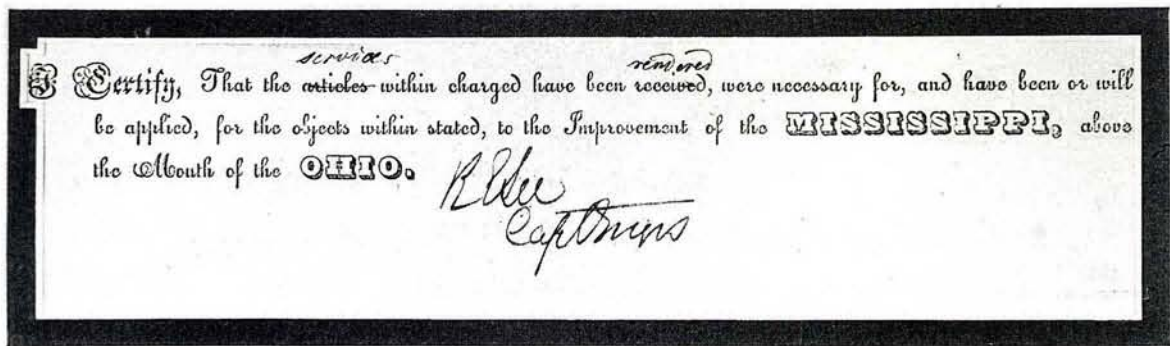 services rendered
I Certify, That the articles within charged have been received, were necessary for, and have been or will
be applied, for the objects within stated, to the Improvement of the MISSISSIPPI, above
the Mouth of the OHIO.
R E Lee
Capt Engrs